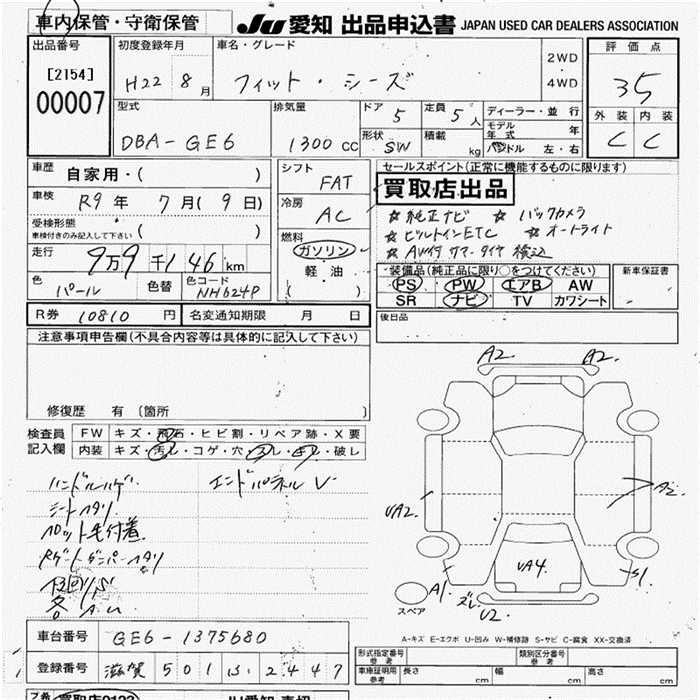 車内保管・守衛保管 JU 愛知 出品申込書 JAPAN USED CAR DEALERS ASSOCIATION
出品番号 初度登録年月 車名・グレード 評価点
[2154] H22 8月 フィット・シーズ 2WD 35
00007 4WD
型式 排気量 ドア 5 定員 5人 ディーラー・並行 外装 内装
モデル年式 年
DBA-GE6 1300cc 形状 SW 積載 kg ハンドル 左・右 C C
車歴 自家用・( ) シフト FAT セールスポイント(正常に機能するものに限ります)
車検 R9年 7月(9日) 冷房 AC 買取店出品
☆純正ナビ ☆バックカメラ
受検形態 ( )
車検付きのみ記入して下さい
☆ビルトインETC ☆オートライト
走行 9万9千146km 燃料 ガソリン
☆AW付サマータイヤ積込
色 パール 色替 色コード NH624P 軽油
( )
装備品(純正品に限り○をつけてください) 新車保証書
PS PW エアB AW
SR ナビ TV カワシート
R券 10810円 名変通知期限 月 日 後日品
注意事項申告欄(不具合内容等は具体的に記入して下さい)
A2. A2.
修復歴 有 〔箇所 〕
検査員 FW キズ・飛石・ヒビ割・リペア跡・X要
記入欄 内装 キズ・汚レ・コゲ・穴・スレ・ハゲ・破レ
ハンドルハゲ エンドパネルV
シートヘタリ
フロット毛付着
Rゲートダンパーヘタリ
UA2. A2.
UA4.
A1 S1
スペア ズレ U2.
A-キズ E-エクボ U-凹み W-補修跡 S-サビ C-腐食 XX-交換済
車台番号 GE6-1375680
形式指定番号 参考 類別区分番号 参考
登録番号 滋賀 501 2447
車庫証明用 参考 長さ cm 幅 cm 高さ cm
買取店0123 JU愛知